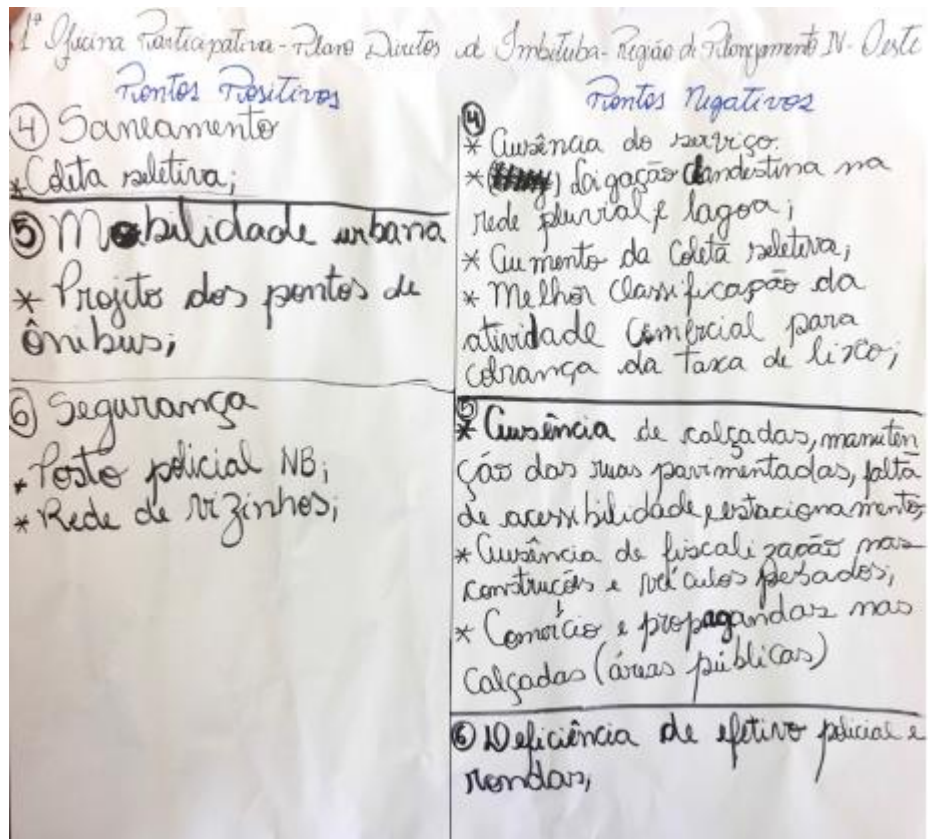 1ª Oficina Participativa - Plano Diretor de Imbituba - Região de Planejamento IV - Oeste
Pontos Positivos
④ Saneamento
* Coleta seletiva;
⑤ Mobilidade urbana
* Projeto dos pontos de
ônibus;
⑥ Segurança
* Posto policial NB;
* Rede de vizinhos;
Pontos Negativos
④
* Ausência do serviço.
* Ligação clandestina na
rede pluvial e lagoa;
* Aumento da coleta seletiva;
* Melhor classificação da
atividade comercial para
cobrança da taxa de lixo;
⑤
* Ausência de calçadas, manuten
ção das ruas pavimentadas, falta
de acessibilidade, estacionamento;
* Ausência de fiscalização nas
construções e veículos pesados;
* Comércio e propagandas nas
calçadas (áreas públicas)
⑥ Deficiência de efetivo policial e
rondas,